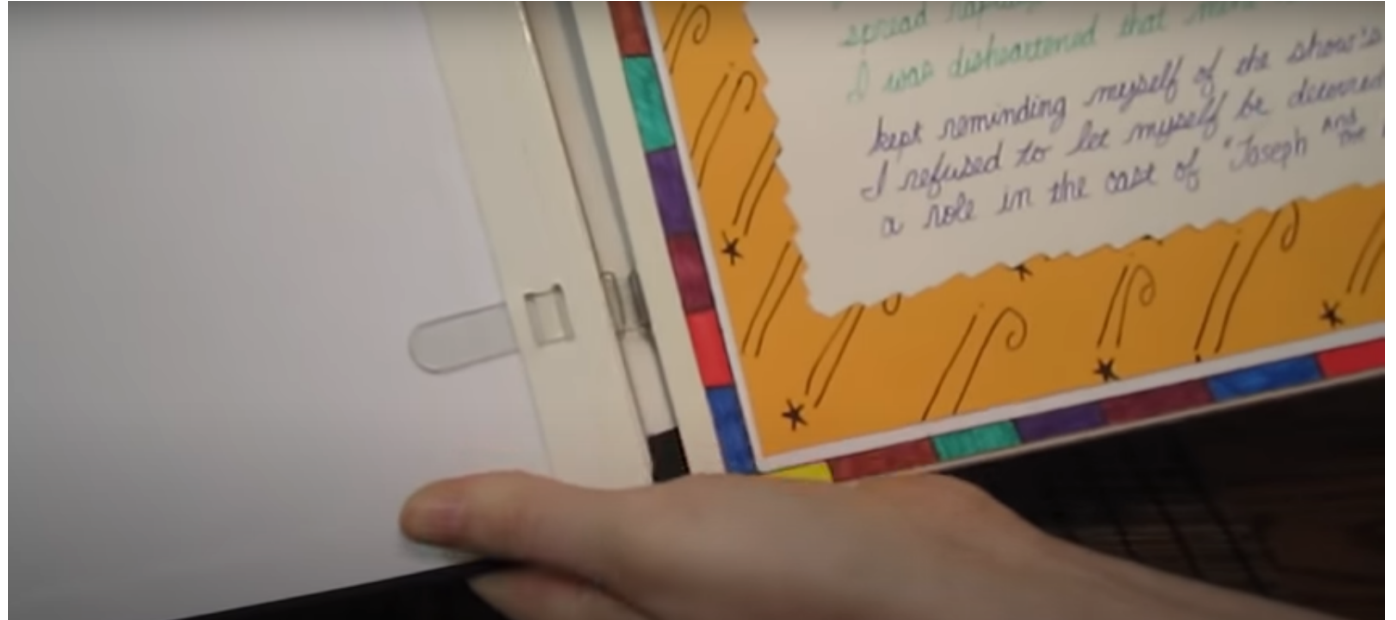 spread
I was disheartened that
kept reminding myself of the show's
I refused to let myself be
a role in the cast of "Joseph and the